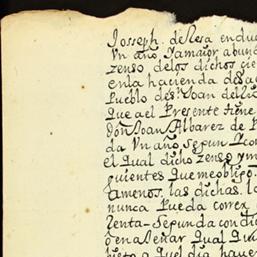 Josseph de Resa en du
Un año Jamaior abun
zenso delos dichos cie
enla hacienda desa
Pueblo des.n Joan del
Que ael Presente tiene
Don Joan Albarez de
da Un año segun
el Qual dicho zenso y m
guientes Que me obligo
tamenos. las dichas. l
nunca Pueda correx
Renta Segunda con di
o en a Señar Qual Qui